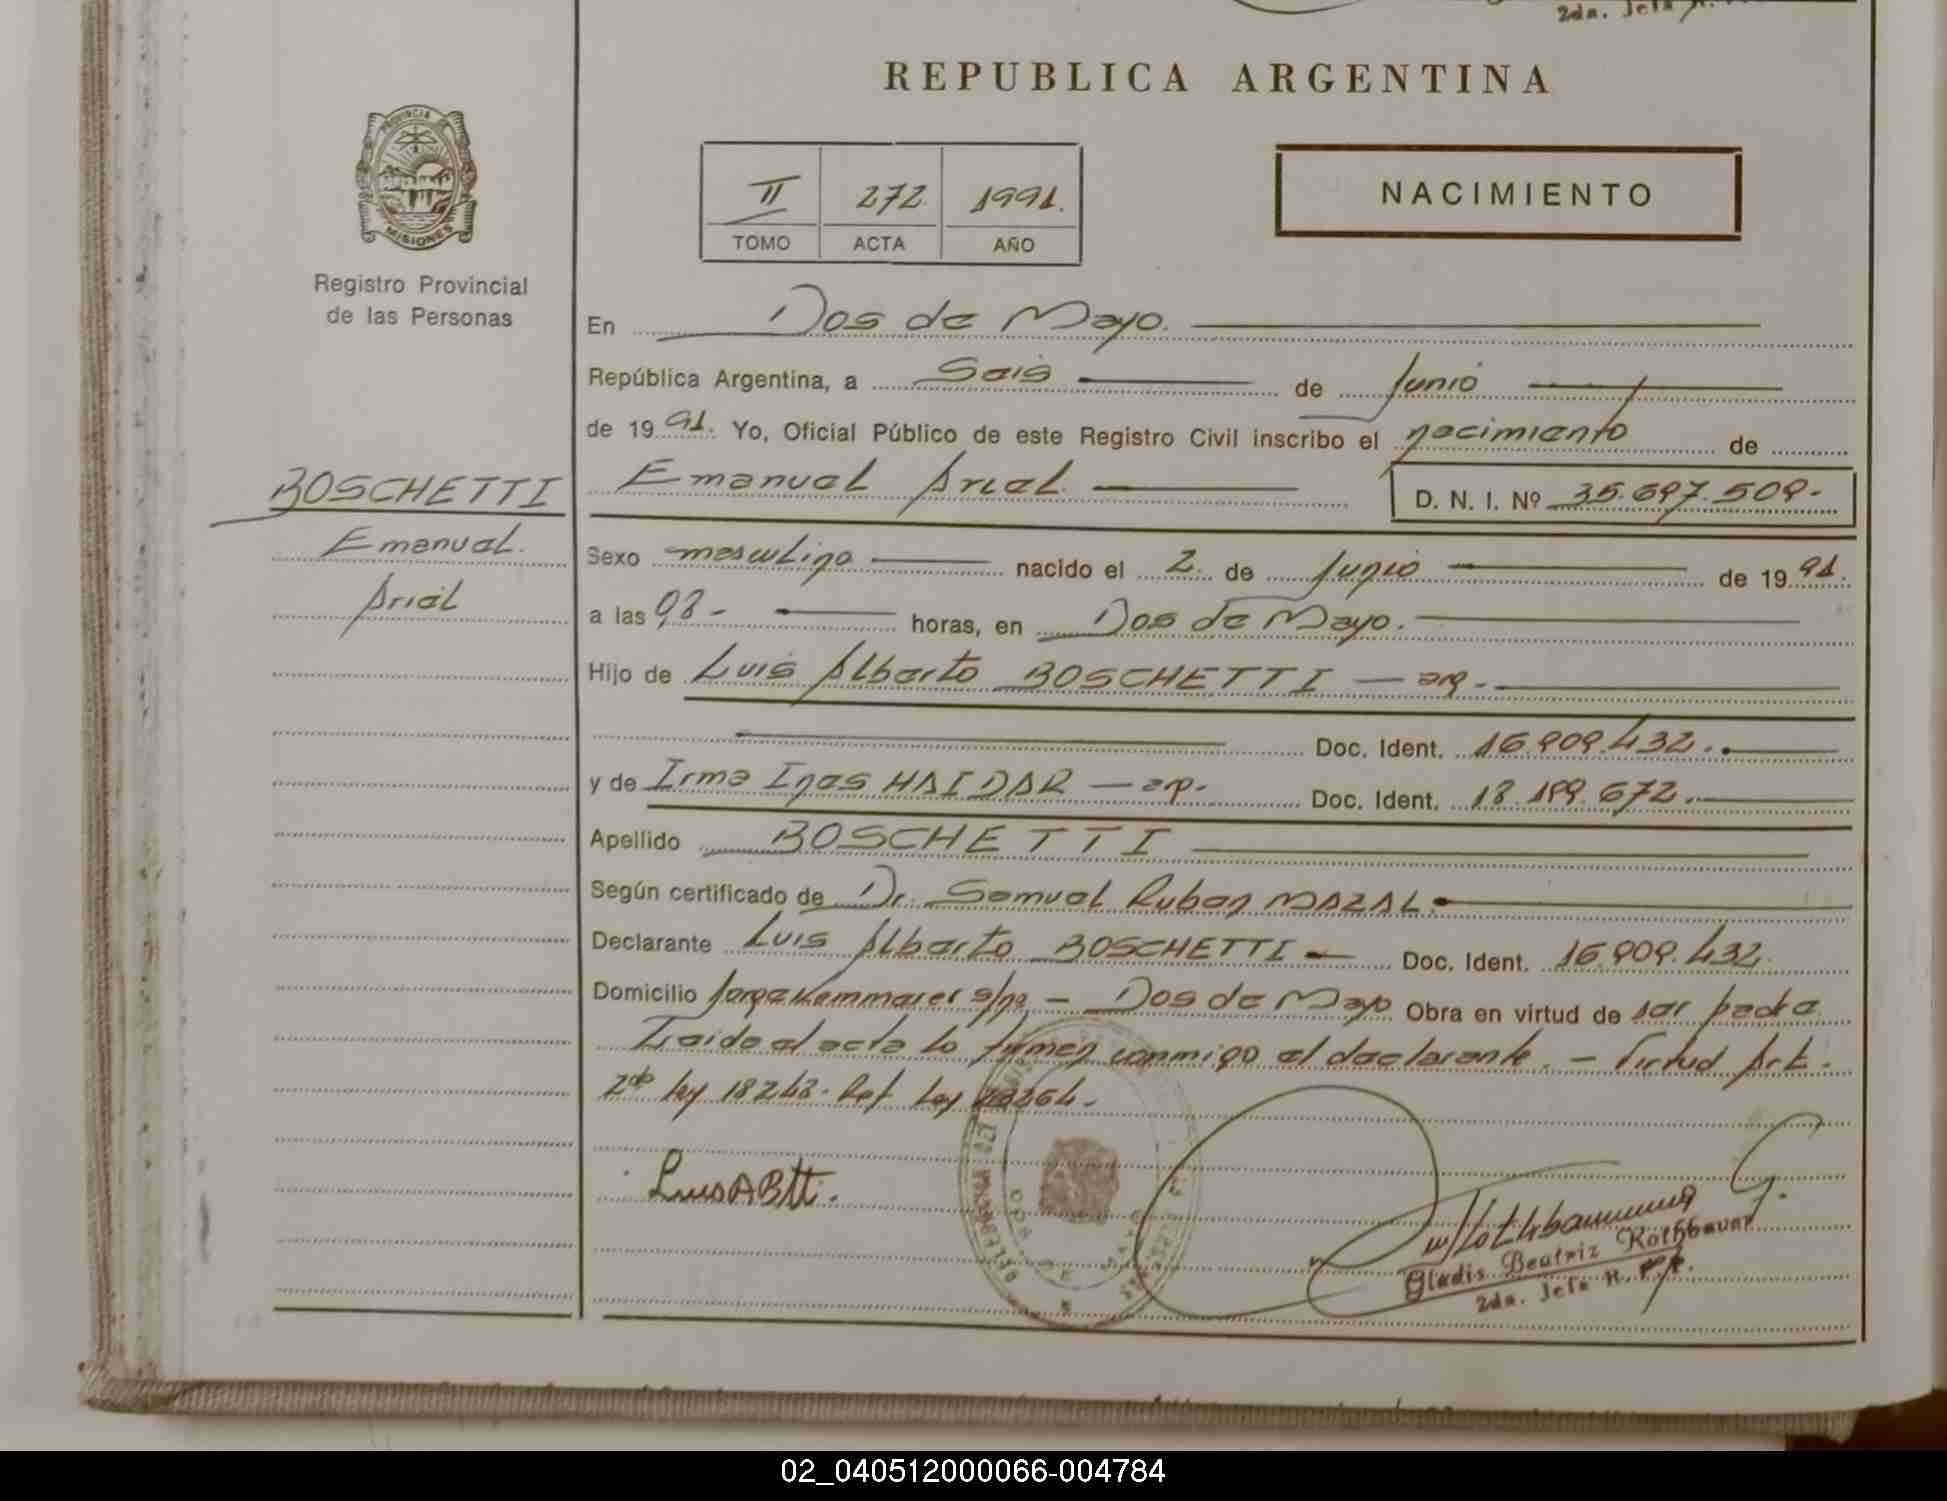 2da. Jefa R.
REPUBLICA ARGENTINA
PROVINCIA
MISIONES
Registro Provincial
de las Personas
II 272 1991.
TOMO ACTA AÑO
NACIMIENTO
En Dos de Mayo.
República Argentina, a Seis de Junio
de 1991. Yo, Oficial Público de este Registro Civil inscribo el nacimiento de
Emanuel Ariel D. N. I. Nº 35.697.509-
BOSCHETTI
Emanuel.
Ariel
Sexo masculino nacido el 2 de Junio de 1991.
a las 08- horas, en Dos de Mayo.
Hijo de Luis Alberto BOSCHETTI — arg-
Doc. Ident. 16.909.432.
y de Irma Ines HAIDAR — ap- Doc. Ident. 18.199.672.
Apellido BOSCHETTI
Según certificado de Dr. Samuel Ruben MAZAL
Declarante Luis Alberto BOSCHETTI — Doc. Ident. 16.909.432
Domicilio Jorge Kemmerer s/nº — Dos de Mayo Obra en virtud de ser padre
Leido el acta la firman conmigo el declarante. — Virtud Art.
2do ley 18248. Ref. Ley 23264.
Luis A Btti.
DOS DE MAYO
Gladis Beatriz Rothbauer
2da. Jefa R. P. P.
02_040512000066-004784